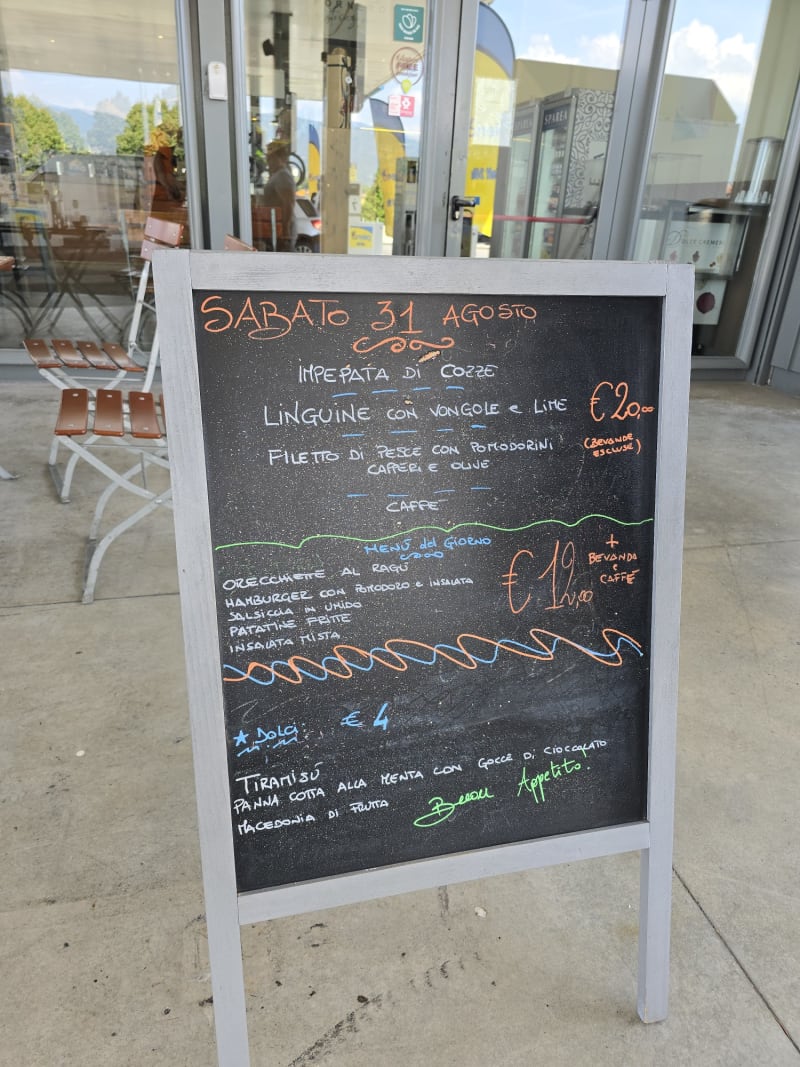 SABATO 31 AGOSTO
IMPEPATA DI COZZE
LINGUINE CON VONGOLE e LIME
€20,00
(BEVANDE ESCLUSE)
FILETTO DI PESCE CON POMODORINI
CAPPERI E OLIVE
CAFFÈ
MENÙ del GIORNO
ORECCHIETTE AL RAGÙ
HAMBURGER CON POMODORO E INSALATA
SALSICCIA IN UMIDO
PATATINE FRITTE
INSALATA MISTA
€12,00
+
BEVANDA
e
CAFFÈ
★ DOLCI € 4
TIRAMISÚ
PANNA COTTA ALLA MENTA CON GOCCE DI CIOCCOLATO
MACEDONIA DI FRUTTA
Buon Appetito!
SPAREA
DOLCE CREMERIA